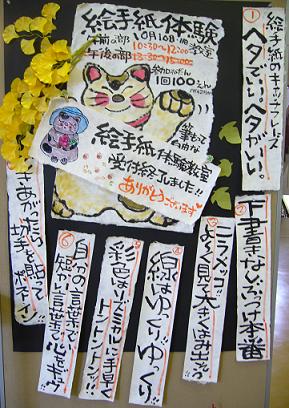 絵手紙体験
10月10日
教室
午前の部 10:30~12:00
午後の部 13:30~15:00
1回100えん
絵手紙体験教室
受付終了しました!!
ありがとうございます
①
絵手紙のキャッチフレーズ
ヘタでいい。ヘタがいい。
②
下書きなし。ぶっつけ本番
③
よく見て大きくはみ出して
④
線はゆっくりゆっくり!!
⑤
彩色はリズミカルに手早く
トントントン!!
⑥
自分の言葉で
短い言葉で心をギュッ
切手を貼ってポストイン